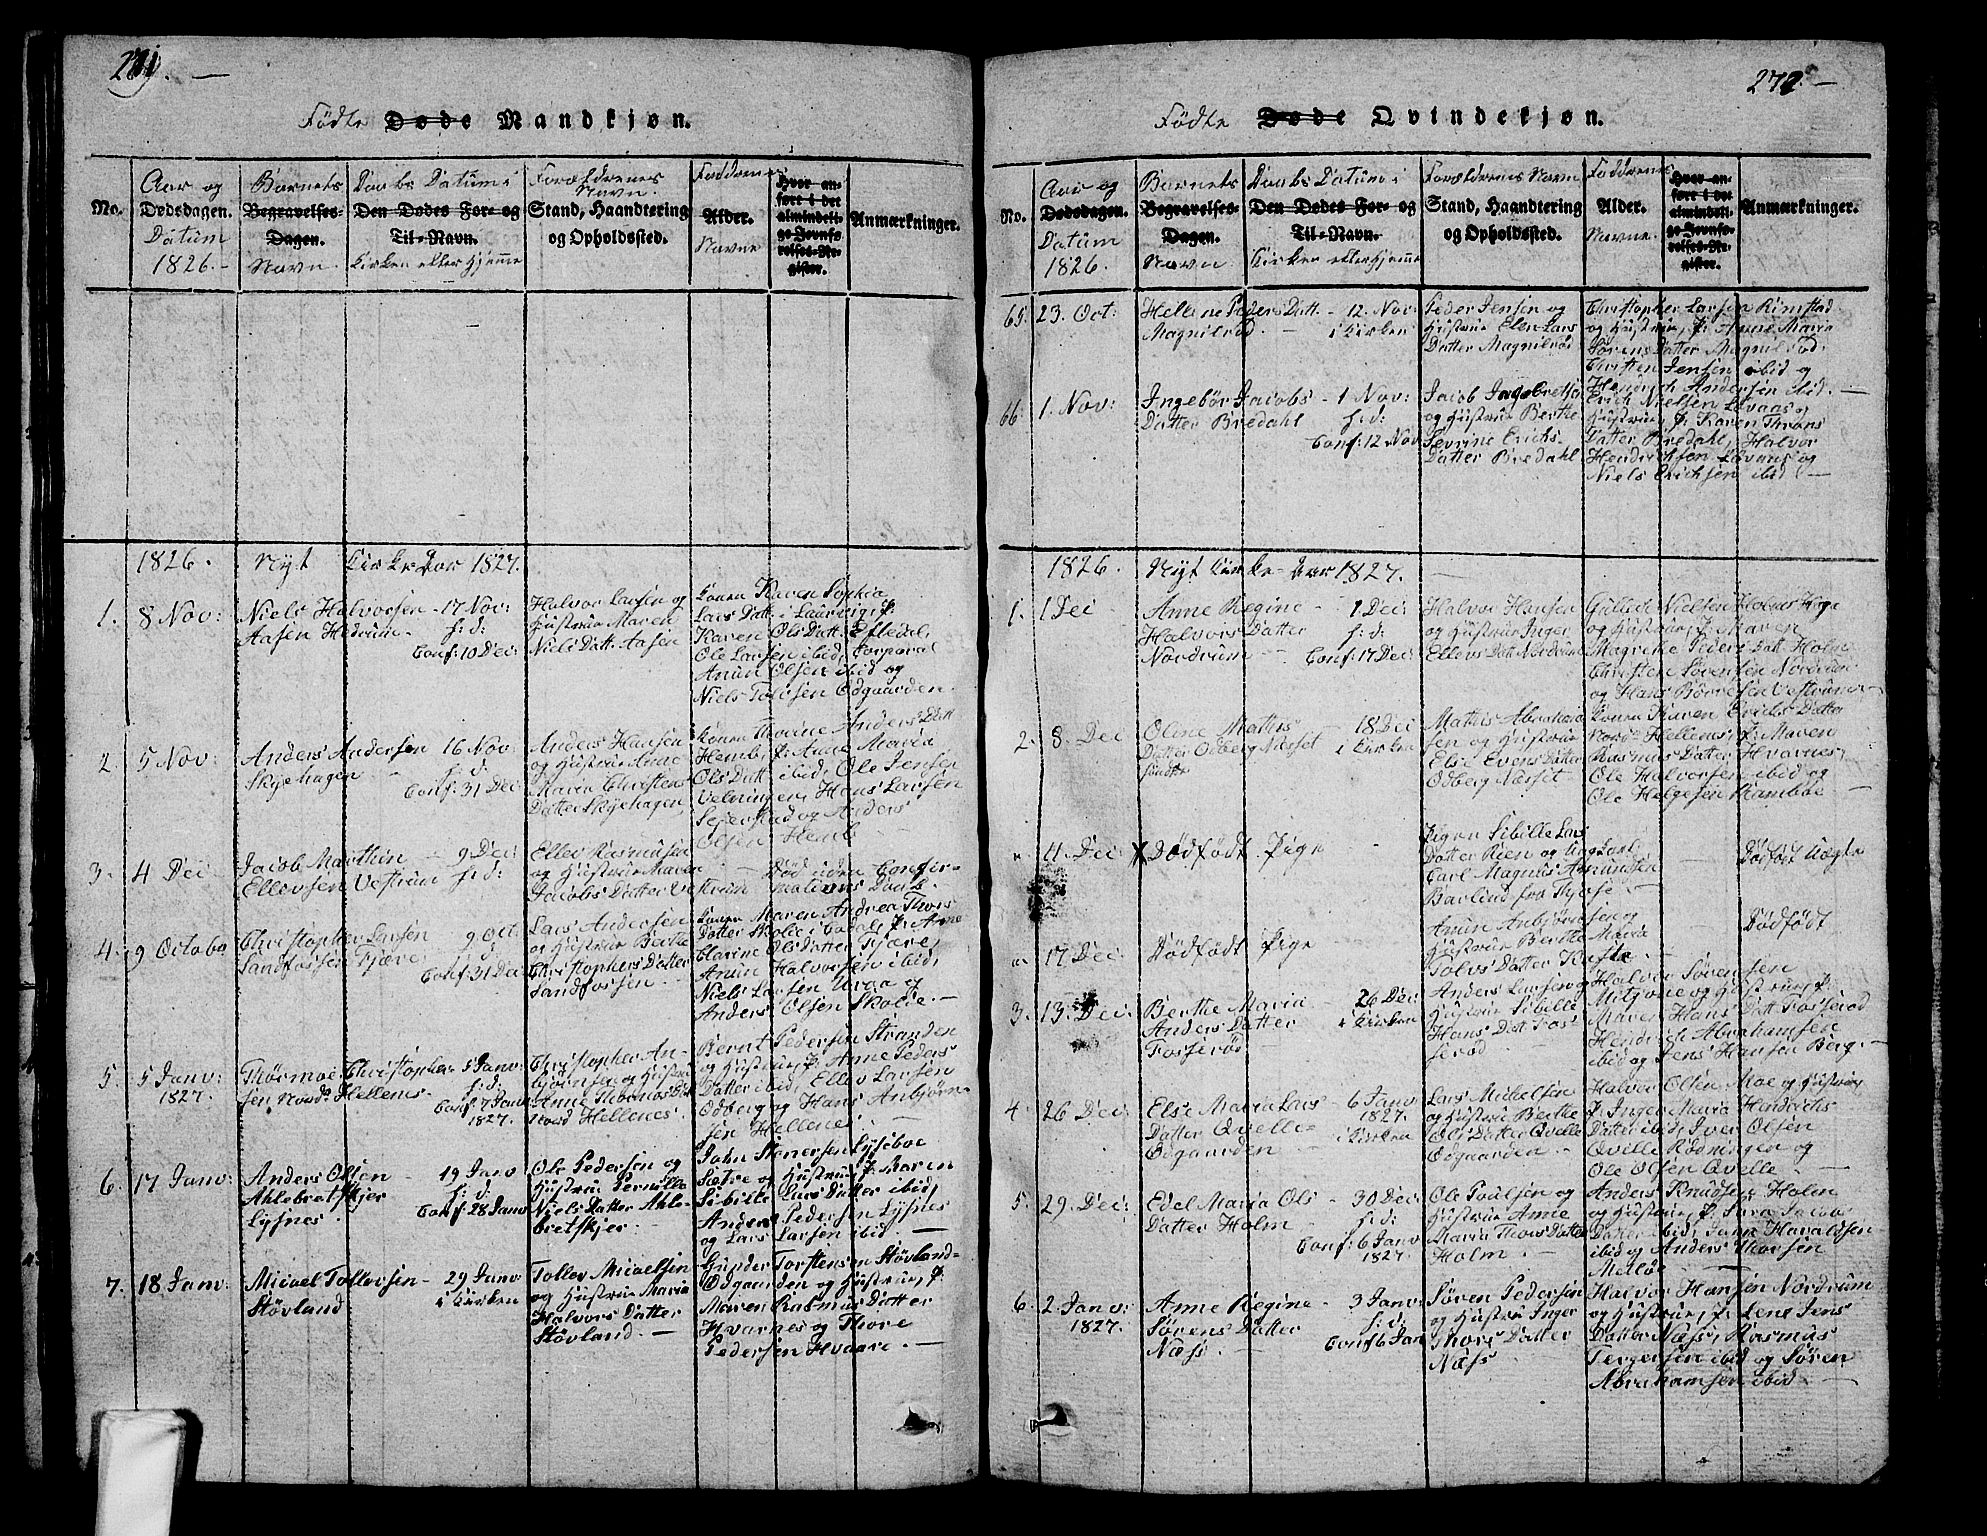 271. —
Fødte Døde Mandkjøn.
No.
Aar og
Dødsdagen.
Datum
1826. -
Barnets
Begravelses-
Dagen.
Navn.
Daabs Datum i
Den Dødes For- og
Til-Navn.
Kirken eller Hjemme
Forældrenes
Navn.
Stand, Haandtering
og Opholdssted.
Faddernes
Alder.
Navne
Hvor an-
ført i det
almindeli-
ge Jevnfø-
relses-Re-
gister.
Anmærkninger.
1826. Nyt Kirke Aar 1827.
1. 8 Nov:
Niels Halvorsen
Aasen Hedrum.
17 Nov:
h: d:
Conf: 10 Dec:
Halvor Larsen og
Hustrue Maren
Niels Datt: Aasen
Konen Karen Sophia
Lars Datt: i Laurvig, P:
Karen Ols Datt: Efledal,
Ole Larsen ibid, Corporal
Anun Olsen ibid og
Niels Tolfsen Odgaarden.
2 5 Nov:
Anders Andersen
Skjehagen
16 Nov
h: d:
Conf: 31 Dec:
Anders Hansen
og Hustrue Anne
Maria Christens
Datter Skjehagen,
Konen Thorine Anders Datt
Hemb, P: Anne Maria
Ols Datt ibid, Ole Jensen
Velninger, Hans Larsen
Sejerstad og Anders
Olsen Hemb -
3. 4 Dec
Jacob Marthin
Ellevsen Vestrum
9 Dec:
h: d:
Ellev Rasmusen
og Hustrue Maren
Jacobs Datter Vestrum
Død uden Confir-
mations Daab.
4. 9 October
Christopher Larsen
Sandfossen Kjære,
9 Oct:
h: d:
Conf 31 Dec:
Lars Andersen
og Hustrue Berthe
Christophers Datter
Sandfossen. -
Konen Maren Andrea Thors
Datter Skolie i Lodal, P: Anne
Clarine Ols Datter Kjære,
Anun Halvorsen ibid,
Niels Larsen Uraa og
Anders Olsen Skolie. -
5. 5 Janv:
1827.
Thormoe Christopher-
sen Nord: Hellenes -
5 Janv:
h: d:
Conf 7 Janv
1827.
Christopher An-
bjørnsen og Hustrue
Anne Thormos Datt
Nord Hellenes.
Bernt Pedersen Stranden
og Hustrue, P: Anne Peders
Datter ibid, Ellev Larsen
Odberg og Hans Anbjørn-
sen Hellene
6. 17 Janv:
Anders Olsen
Ahlebretskjer
Lysnes.
19 Janv
h: d:
Conf: 28 Janv
Ole Pedersen og
Hustrue Pernille
Niels Datter Ahle-
bretskjer.
John Stenersen Lyseboe
Sætre og Hustrue, P: Maren
Sibille Lars Datter ibid,
Anders Pedersen Lysnes
og Lars Larsen ibid. -
7. 18 Janv:
Micael Tollevsen
Støvland
29 Janv
i Kirken
Tollev Micaelsen
og Hustrue Maria
Halvors Datter
Støvland. -
Gunder Torstensen Støvland-
Odgaarden og Hustrue, P:
Maren Rasmus Datter
Hvarnes og Thore
Pedersen Hvaare. -
272. —
Fødte Døde Qvindekjøn.
No.
Aar og
Dødsdagen.
Datum
1826.
Barnets
Begravelses-
Dagen.
Navn
Daabs Datum i
Den Dødes For- og
Til-Navn.
Kirken eller Hjemme
Forældrenes Navn
Stand, Haandtering
og Opholdssted.
Faddernes
Alder.
Navne
Hvor an-
ført i det
almindeli-
ge Jevnfø-
relses-Re-
gister.
Anmærkninger.
65. 23. Oct:
Hellene Peders Datt.
Magnilrød. -
12. Nov:
i Kirken
Peder Jensen og
Hustrue Ellen Lars
Datter Magnilrød
Christopher Larsen Rimstad
og Hustrue, P: Anne Maria
Sørens Datter Magnilrød.
Christen Jensen ibid og
Hendrich Andersen ibid. -
66. 1. Nov:
Ingebør Jacobs
Datter Bredahl
1 Nov:
h: d:
Conf: 12 Nov
Jacob Ingebretsen
og Hustrue Berthe
Sevrine Erichs-
Datter Bredahl
Erich Nielsen Løvaas og
Hustrue, P: Karen Throns
Datter Bredahl, Halvor
Hendrichsen Løvaas og
Niels Erichsen ibid -
1826. Nyt Kirke-Aar 1827.
1. 1 Dec
Anne Regine
Halvors Datter
Nordrum -
1 Dec:
h: d:
Conf: 17 Dec:
Halvor Hansen
og Hustrue Inger
Ellevs Datt Nordrum
og Hustrue, P: Karen
Magrene Peders Datt Holm
Christen Sørensen Nordrum
og Hans Børresen Vestrum -
2. 8. Dec
Oline Mathis
Datter Odberg Næsset
18 Dec
i Kirken
Mathis Abraham-
sen og Hustrue
Else Evens Datter
Odberg Næsset
Konen Karen Erichs Datter
Nord: Hellenes, P: Maren
Rasmus Datter Hvarnes,
Ole Halvorsen ibid og
Ole Helgesen Ramboe. -
" 11. Dec X Dødfødt Pige
Pigen Sibille Lars
Datter Rien og Ungkarl
Carl Magnus Asmundsen
Barlind fra Thjøse.
Dødfødt Uægte
" 17 Dec: Dødfødt Pige
Anun Anbjørnsen og
Hustrue Berthe Maria
Tolvs Datter Kaste -
Dødfødt
3. 13. Dec:
Berthe Maria
Anders Datter
Fosserød
26 Dec:
i Kirken
Anders Larsen og
Hustrue Sibille
Hans Datt Fos-
serød -
Halvor Sørensen
Maren Hans Datt Fosserød
Hendrich Abrahamsen
ibid og Jens Hansen Berg. -
4 26 Dec:
Else Maria Lars
Datter Qvelle-
Odgaarden
6 Janv
1827.
i Kirken
Lars Michelsen
og Hustrue Berthe
Ols Datter Qvelle
Odgaarden -
Halvor Olsen Moe og Hustrue
P: Inger Maria Hendrichs
Datter ibid, Iver Olsen
Qvelle Rødningen og
Ole Olsen Qvelle. -
5. 29. Dec:
Edel Maria Ols
Datter Holm -
30 Dec:
h: d:
Conf: 6 Janv
1827.
Ole Poulsen og
Hustrue Anne
Maria Thors Datter
Holm. -
Anders Knudsen Holm
og Hustrue, P: Sara Jacobs
Datter ibid, John Haraldsen
ibid og Anders Thorsen
Melløe -
6. 2 Janv:
1827.
Anne Regine
Sørens Datter
Næss.
3 Janv:
h: d:
Conf 6 Jan
Søren Pedersen
og Hustrue Inger
Thors Datter
Næss.
Halvor Hansen Nordrum
og Hustrue, P: Lene Jens
Datter Næss, Rasmus
Tergersen ibid og Søren
Abrahamsen ibid -